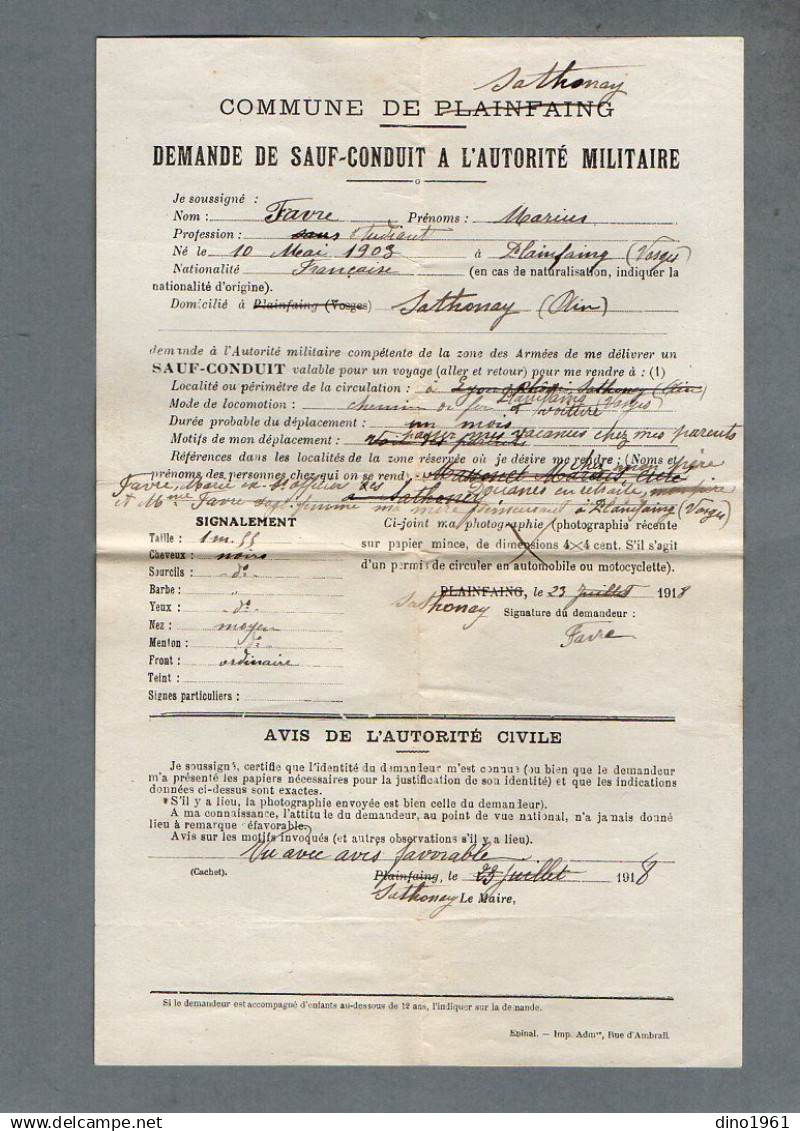 Sathonay
COMMUNE DE PLAINFAING
DEMANDE DE SAUF-CONDUIT A L'AUTORITÉ MILITAIRE
Je soussigné :
Nom : Favre Prénoms : Marius
Profession : sans étudiant
Né le 10 Mai 1903 à Plainfaing (Vosges)
Nationalité Française (en cas de naturalisation, indiquer la
nationalité d'origine).
Domicilié à Plainfaing (Vosges) Sathonay (Ain)
demande à l'Autorité militaire compétente de la zone des Armées de me délivrer un
SAUF-CONDUIT valable pour un voyage (aller et retour) pour me rendre à : (1)
Localité ou périmètre de la circulation : à Lyon Sathonay (Ain)
Plainfaing (Vosges)
Mode de locomotion : chemin de fer & voiture
Durée probable du déplacement : un mois
Motifs de mon déplacement : passer mes vacances chez mes parents
Références dans les localités de la zone réservée où je désire me rendre : (Noms et
chez mon père
prénoms des personnes chez qui on se rend)
Favre, Marie ex-officier des Douanes en retraite, mon père
à Sathonay
et Mme Favre sa femme ma mère demeurant à Plainfaing (Vosges)
SIGNALEMENT
Taille : 1m.55
Cheveux : noirs
Sourcils : -do-
Barbe : "
Yeux : -do-
Nez : moyen
Menton : do
Front : ordinaire
Teint :
Signes particuliers :
Ci-joint ma photographie (photographie récente
sur papier mince, de dimensions 4×4 cent. S'il s'agit
d'un permis de circuler en automobile ou motocyclette).
PLAINFAING, le 23 Juillet 1918
Sathonay Signature du demandeur :
Favre
AVIS DE L'AUTORITÉ CIVILE
Je soussigné, certifie que l'identité du demandeur m'est connue (ou bien que le demandeur
m'a présenté les papiers nécessaires pour la justification de son identité) et que les indications
données ci-dessus sont exactes.
S'il y a lieu, la photographie envoyée est bien celle du demandeur).
A ma connaissance, l'attitude du demandeur, au point de vue national, n'a jamais donné
lieu à remarque défavorable.
Avis sur les motifs invoqués (et autres observations s'il y a lieu).
Vu avec avis favorable
(Cachet). Plainfaing, le 23 Juillet 1918
Sathonay Le Maire,
Si le demandeur est accompagné d'enfants au-dessous de 12 ans, l'indiquer sur la demande.
Epinal. — Imp. Admve, Rue d'Ambrail.
dino1961